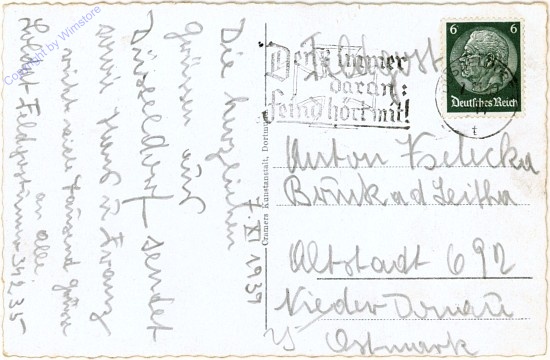 Copyright by Wimstore
Die herzlichen
Grüssen aus
Düsseldorf sendet
euch Hans u Franz
viele tausend Grüsse
an alle
Feldpostnummer 34235
7. XI 1939
Cramers Kunstanstalt, Dortmund
Feldpost
Denk immer
daran:
Feind hört mit!
6 6
Deutsches Reich
t
Anton
Bruck ad Leitha
Altstadt 692
Nieder Donau
Ostmark